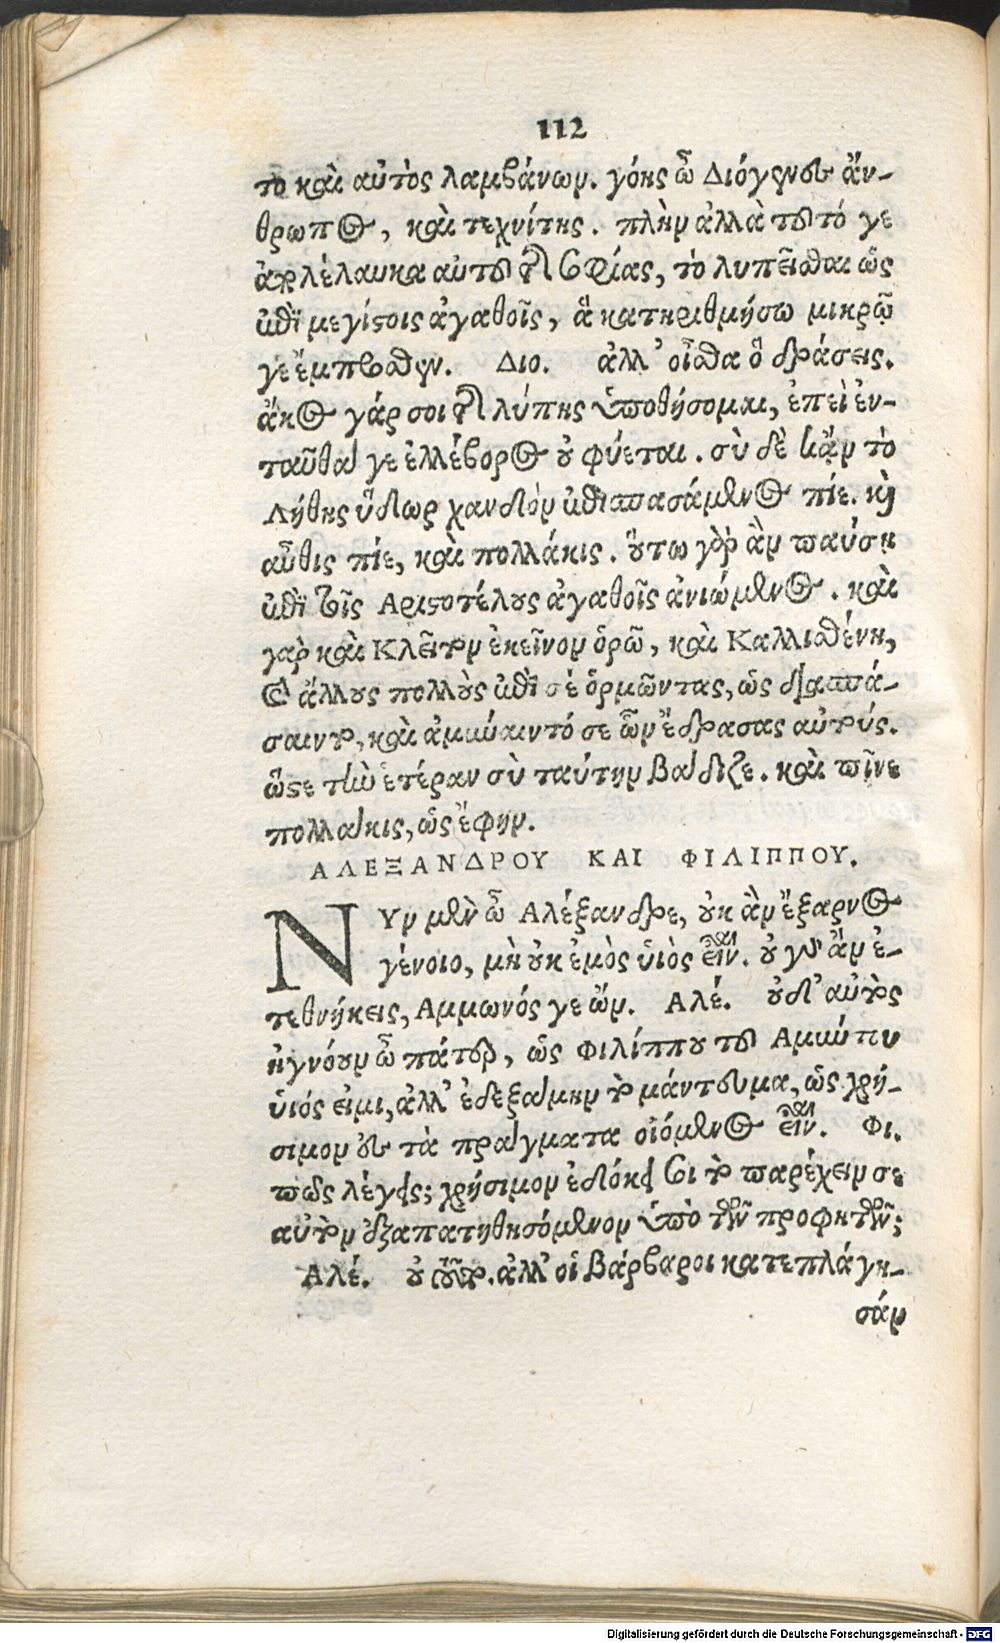 112
το καὶ αὐτὸς λαμβάνων. γόης ὦ Διόγενες ἄν-
θρωπος, καὶ τεχνίτης. πλὴν ἀλλὰ τοῦτό γε
ἀπολέλαυκα αὐτοῦ τῆς σοφίας, τὸ λυπεῖσθαι ὡς
ἐπὶ μεγίστοις ἀγαθοῖς, ἃ κατηριθμήσω μικρῷ
γε ἔμπροσθεν. Διο. ἀλλ' οἶσθα ὃ δράσεις.
ἄκος γάρ σοι τῆς λύπης ὑποθήσομαι, ἐπεὶ ἐν-
ταῦθά γε ἐλλέβορος οὐ φύεται. σὺ δὲ κἂν τὸ
Λήθης ὕδωρ χανδὸν ἐπισπασάμενος πίε. καὶ
αὖθις πίε, καὶ πολλάκις. οὕτω γὰρ ἂν παύσῃ
ἐπὶ τοῖς Αριστοτέλους ἀγαθοῖς ἀνιώμενος. καὶ
γὰρ καὶ Κλεῖτον ἐκεῖνον ὁρῶ, καὶ Καλλισθένη,
καὶ ἄλλους πολλοὺς ἐπὶ σὲ ὁρμῶντας, ὡς διασπά-
σαιντο, καὶ ἀμύναιντό σε ὧν ἔδρασας αὐτούς.
ὥστε τὴν ἑτέραν σὺ ταύτην βάδιζε. καὶ πῖνε
πολλάκις, ὡς ἔφην.
ΑΛΕΞΑΝΔΡΟΥ ΚΑΙ ΦΙΛΙΠΠΟΥ.
ΝΥν μὲν ὦ Αλέξανδρε, οὐκ ἂν ἔξαρνος
γένοιο, μὴ οὐκ ἐμὸς ὑιὸς εἶναι. οὐ γὰρ ἂν ἐ-
τεθνήκεις, Αμμωνός γε ὤν. Αλέ. οὐδ' αὐτὸς
ἠγνόουν ὦ πάτερ, ὡς Φιλίππου τοῦ Αμύντου
ὑιός εἰμι, ἀλλ' ἐδεξάμην τὸ μάντευμα, ὡς χρή-
σιμον ἐς τὰ πράγματα οἰόμενος εἶναι. Φι.
πῶς λέγεις; χρήσιμον ἐδόκει σοι τὸ παρέχειν σε
αὐτὸν ἐξαπατηθησόμενον ὑπὸ τῶν προφητῶν;
Αλέ. οὐ τοῦτο. ἀλλ' οἱ Βάρβαροι κατεπλάγη-
σάν
Digitalisierung gefördert durch die Deutsche Forschungsgemeinschaft - DFG